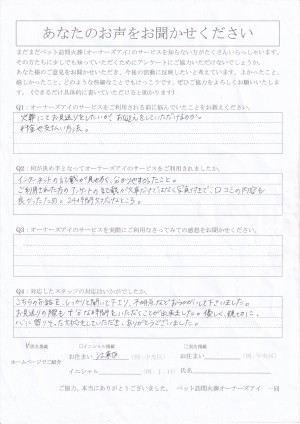 あなたのお声をお聞かせください
まだまだペット訪問火葬(オーナーズアイ)のサービスを知らない方がたくさんいらっしゃいます。
その方たちに少しでも知っていただくためにアンケートにご協力いただけないでしょうか。
あなた様のご意見をお聞かせいただき、今後の活動に反映したいと考えています。よかったこと、
嬉しかったこと、どのような些細なことでもけっこうです。ぜひご協力をよろしくお願いいたしま
す。(できるだけ具体的に書いていただけると助かります)
Q1：オーナーズアイのサービスをご利用される前に悩んでいたことをお教えください。
火葬にてお見送りをしたいが、お迎えをしていただけるのか。
料金や支払い方法。
Q2：何が決め手となってオーナーズアイのサービスをご利用されましたか。
インターネットの記載が見やすく、分かりやすかったこと。
ご利用された方のアンケートの記載が文章だけではなく写真付きで、口コミの内容も
良かったため。24時間
Q3：オーナーズアイのサービスを実際にご利用なさってみての感想をお聞かせください。
Q4：対応したスタッフの対応はいかがでしたか。
こちらのお話をしっかりと聞いて下さり、不明点などおうかがいして下さいました。
お見送りの際も十分な時間をいただくことが出来ました。優しく、親切に、
心に寄りそった対応をしていただき、ありがとうございました。
ホームページでご紹介
匿名掲載
イニシャル掲載
実名掲載
お住まい 江東区
お住まい
イニシャル
氏名
ご協力、本当にありがとうございました。 ペット訪問火葬オーナーズアイ 一同